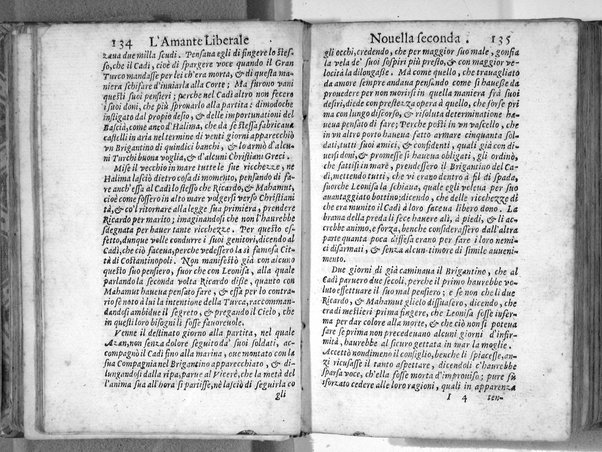 134 L'Amante Liberale
zaua due milla scudi. Pensaua egli di fingere lo stes-
so, che il Cadì, cioè di spargere voce quando il Gran
Turco mandasse per lei ch'era morta, & di questa ma-
niera schifare d'inuiarla alla Corte; Ma furono vani
questi suoi pensieri; perche nel Cadì altro non fecero
i suoi doni, che più sprouarlo alla partita: dimodoche
instigato dal propio desio, & delle importunationi del
Bascià, come anco d'Halima, che da se stessa fabricaua
castelli in aria nel termine di venti giorni apparecchiò
vn Brigantino di quindici banchi, & lo armò d'alcu-
ni Turchi buona voglia, & d'alcuni Christiani Greci.
Mise il vecchio in mare tutte le sue ricchezze, ne
Halima lasciò dietro cosa di momento, pensando di fa-
re anch'essa al Cadì lo stesso che Ricardo, & Mahamut,
cioè come fossero in alto mare volgersi verso Christiani
tà, & col ritornare alla legge sua primiera, prendere
Ricardo per marito; imaginandosi che non l'haurebbe
sdegnata per hauer tante ricchezze. Per questo ef-
fetto, dunque volle condurre i suoi genitori, dicendo al
Cadì, che ciò faceua, perche vedessero la sì famosa Cit-
tà di Costantinopoli. Non manifestò già con alcuno
questo suo pensiero, fuor che con Leonisa, alla quale
parlando la seconda volta Ricardo disse, quanto con
Mahamut haueua pensato fare, & essa per lo contra-
rio fè noto à lui la intentione della Turca, raccomman-
dandosi ambidue il segreto, & pregando il Cielo, che
in questi loro bisogni li fosse fauoreuole.
Venne il destinato giorno alla partita, nel quale
Azan, non senza dolore seguito da' suoi soldati, ac-
compagnò il Cadì fino alla marina, oue montato con la
sua Compagnia nel Brigantino apparecchiato, & di-
lungandosi dalla ripa, parue al Viceré, che la metà del
l'anima sua all'hora si partisse, nè lasciò di seguirla co
gli
Nouella seconda. 135
gli occhi, credendo, che per maggior suo male, gonfia
la vela de' suoi sospiri più presto, & con maggior ve-
locità la dilongasse. Ma come quello, che trauagliato
da amore sempre andaua pensando come si hauesse da
prouedere per non morire in quella maniera frà suoi
desiri, diede con prestezza opera à quello, che forse pri
ma con lungo discorso, & risoluta determinatione ha-
ueua pensato di fare; Tutto posti in vn vascello, che
in vn altro porto haueua fatto armare cinquanta sol-
dati, tutti suoi amici, & confidenti, quali già con di-
uersi doni, & promesse si haueua obligati, gli ordinò,
che fattisi in mare, prendere il Brigantino del Ca-
dì, mettendo tutti, che vi erano dentro à fil di spada,
fuorche Leonisa la schiaua, quale egli voleua per suo
auantaggiato bottino; dicendo, che delle ricchezze di
che era munito il Cadì à loro faceua libero dono. La
brama della preda li fece hauere ali, à piedi, & li ac-
crebbe animo, e forza, benche considerassero dall'altra
parte quanta poca difesa erano per fare i loro nemi-
ci disarmati, & senza alcun timore di simile auueni-
mento.
Due giorni di già caminaua il Brigantino, che al
Cadì paruero due secoli, perche il primo haurebbe vo-
luto effettuare il suo mal pensiero; e se non che li due
Ricardo, & Mahamut glielo dissuasero, dicendo, che
era di mestieri prima fingere, che Leonisa fosse infer-
ma per dar colore alla morte, & che ciò non si poteua
fare se prima non precedeuano alcuni giorni d'infir-
mità, haurebbe al sicuro gettata in mar la moglie.
Accettò nondimeno il consiglio, benche li spiacesse, an-
zi ricusasse il tanto aspettare, dicendoli c'haurebbe
sparsa voce, ch'ella fosse morta d'improuiso; pure sù
sforzato cedere alle loro ragioni, quali in apparenza
I 4 ten-